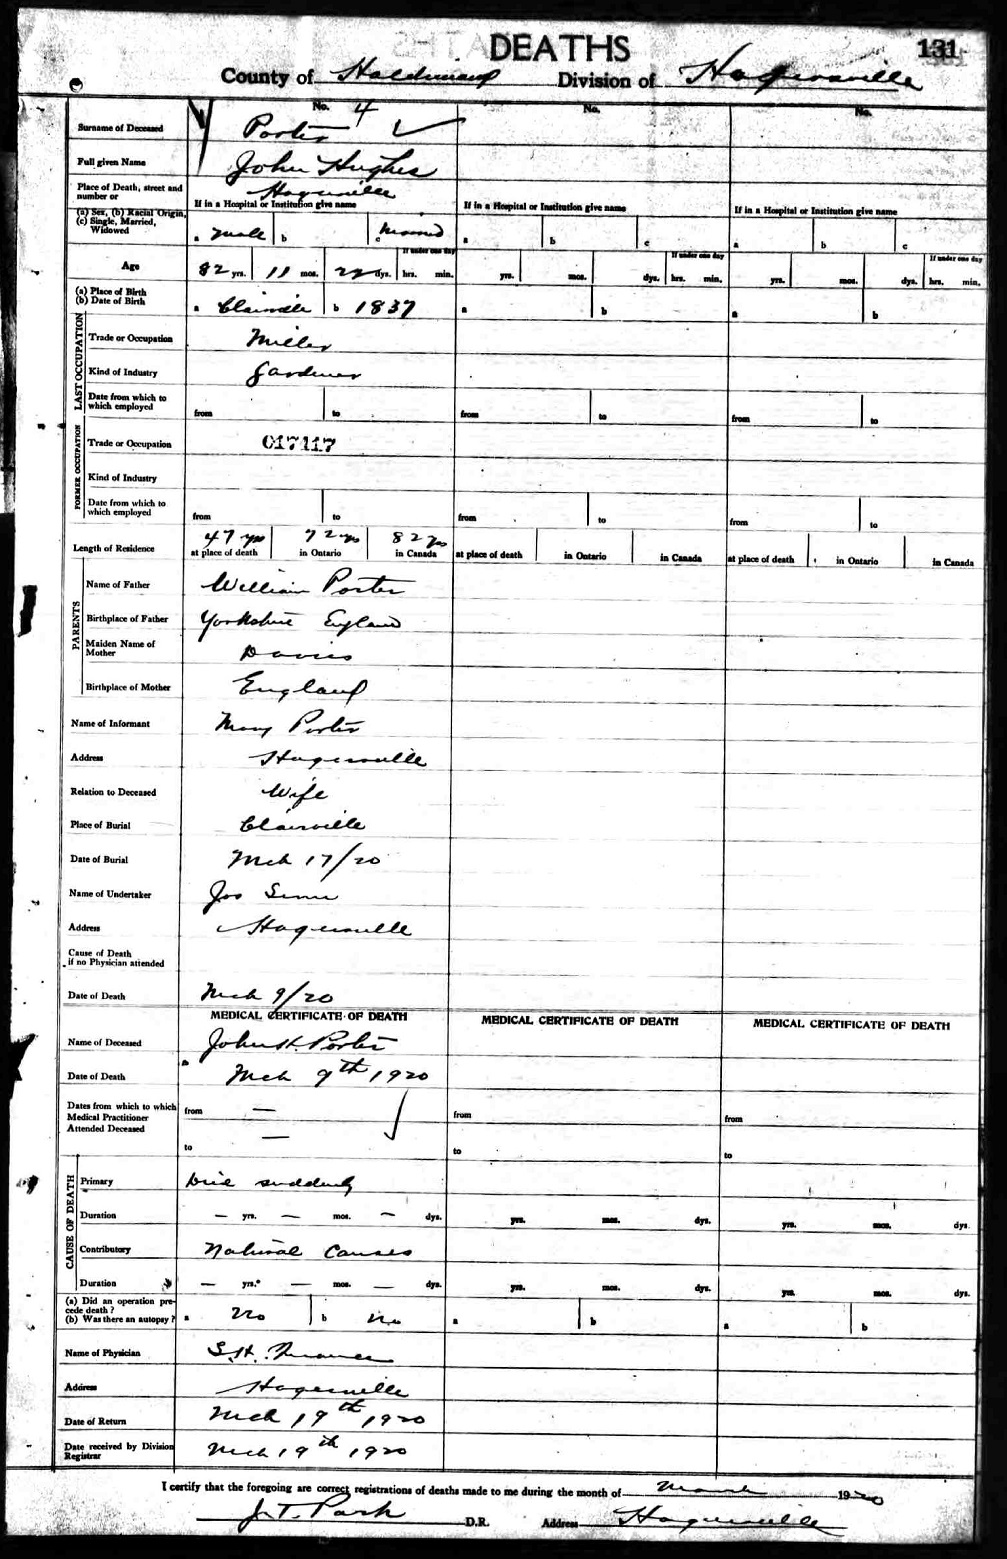 DEATHS 131
County of Haldimand Division of Hagersville
No. 4 No. No.
Surname of Deceased Porter
Full given Name John Hughes
Place of Death, street and number or Hagersville
If in a Hospital or Institution give name If in a Hospital or Institution give name If in a Hospital or Institution give name
(a) Sex, (b) Racial Origin, (c) Single, Married, Widowed a Male b c Married a b c a b c
If under one day If under one day If under one day
Age 82 yrs. 11 mos. 22 dys. hrs. min. yrs. mos. dys. hrs. min. yrs. mos. dys. hrs. min.
(a) Place of Birth
(b) Date of Birth a Clairville b 1837 a b a b
LAST OCCUPATION
Trade or Occupation Miller
Kind of Industry Gardner
Date from which to which employed from to from to from to
FORMER OCCUPATION
Trade or Occupation 017117
Kind of Industry
Date from which to which employed from to from to from to
Length of Residence 47 yrs 72 yrs 82 yrs
at place of death in Ontario in Canada at place of death in Ontario in Canada at place of death in Ontario in Canada
PARENTS
Name of Father William Porter
Birthplace of Father Yorkshire England
Maiden Name of Mother Davis
Birthplace of Mother England
Name of Informant Mary Porter
Address Hagersville
Relation to Deceased Wife
Place of Burial Clairville
Date of Burial Mch 17/20
Name of Undertaker Jos
Address Hagersville
Cause of Death if no Physician attended
Date of Death Mch 9/20
MEDICAL CERTIFICATE OF DEATH MEDICAL CERTIFICATE OF DEATH MEDICAL CERTIFICATE OF DEATH
Name of Deceased John H. Porter
Date of Death Mch 9th 1920
Dates from which to which Medical Practitioner Attended Deceased from — from from
to — to to
CAUSE OF DEATH
Primary Died suddenly
Duration — yrs. — mos. — dys. yrs. mos. dys. yrs. mos. dys.
Contributory Natural Causes
Duration — yrs. — mos. — dys. yrs. mos. dys. yrs. mos. dys.
(a) Did an operation precede death?
(b) Was there an autopsy? a No b No a b a b
Name of Physician S.H.
Address Hagersville
Date of Return Mch 19th 1920
Date received by Division Registrar Mch 19th 1920
I certify that the foregoing are correct registrations of deaths made to me during the month of March 1920
J.T. Park D.R. Address Hagersville